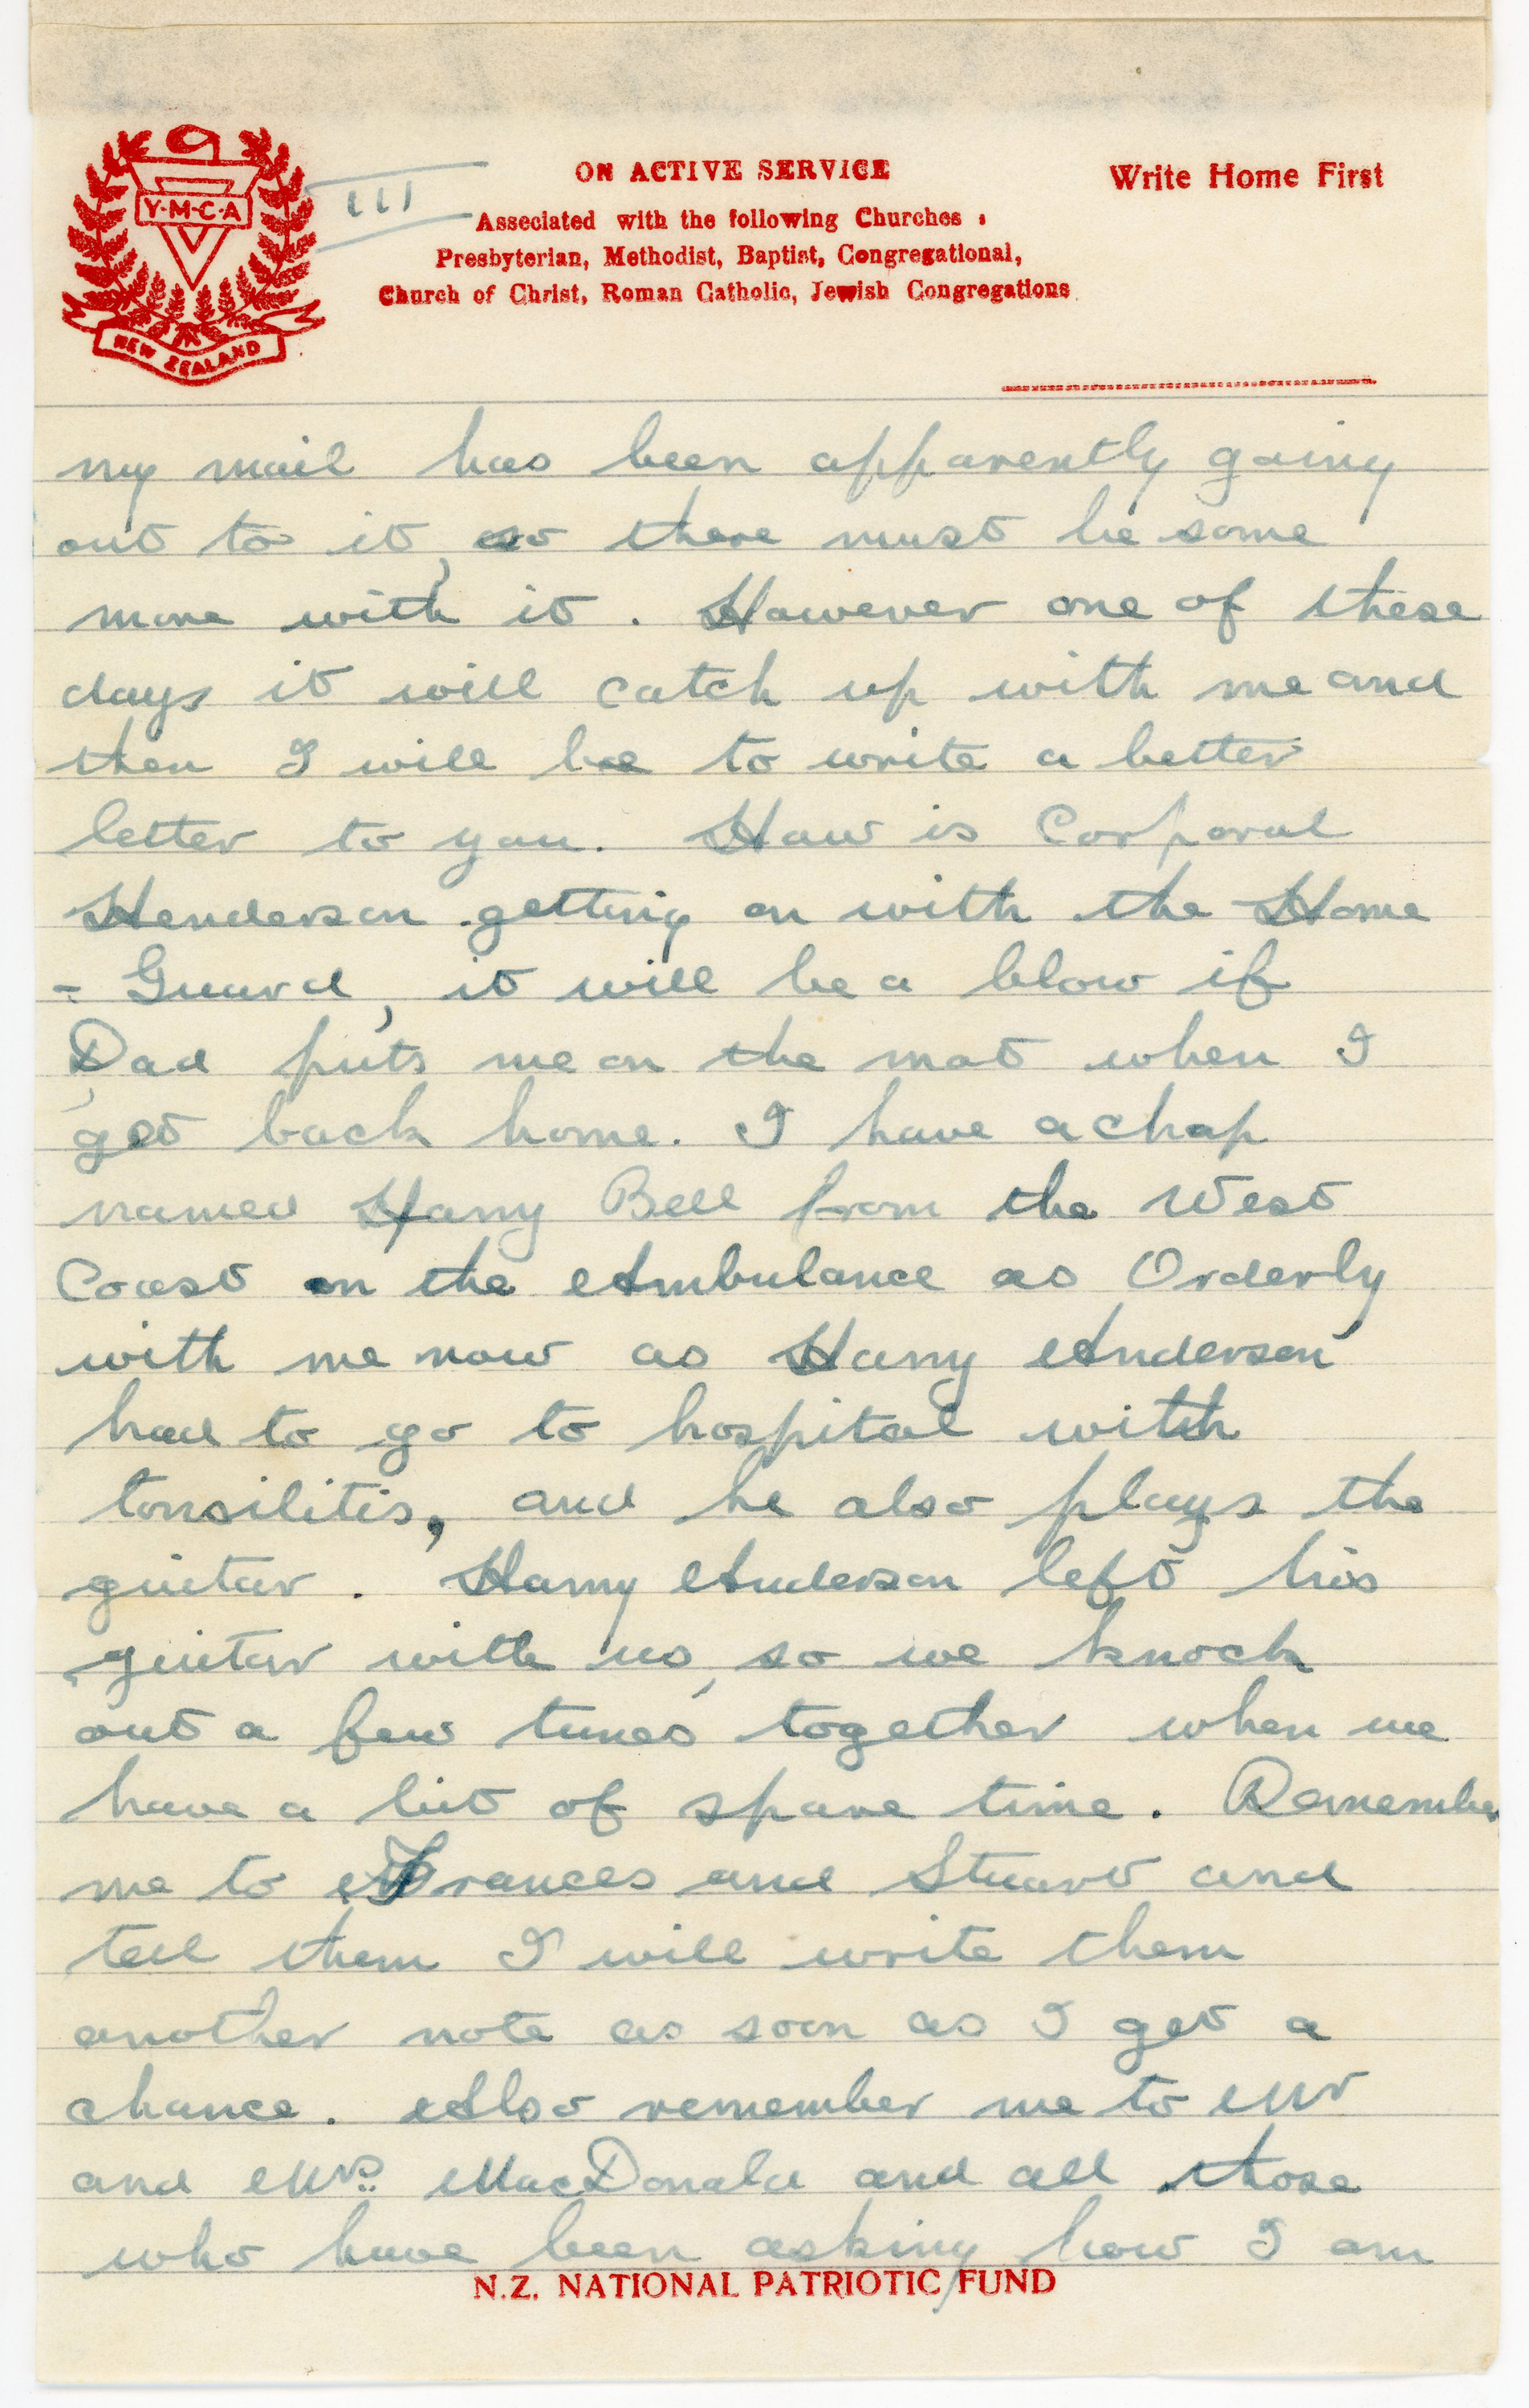 Y·M·C·A
NEW ZEALAND
III
ON ACTIVE SERVICE
Write Home First
Asseciated with the following Churches :
Presbyterian, Methodist, Baptist, Congregational,
Church of Christ, Roman Catholic, Jewish Congregations
my mail has been apparently going
out to it, so there must be some
more with it. However one of these
days it will catch up with me and
then I will be to write a better
letter to you. How is Corporal
Henderson getting on with the Home
- Guard, it will be a blow if
Dad puts me on the mat when I
get back home. I have a chap
named Harry Bell from the West
Coast on the Ambulance as Orderly
with me now as Harry Anderson
had to go to hospital with
tonsilitis, and he also plays the
guitar. Harry Anderson left his
guitar with us, so we knock
out a few tunes together when we
have a bit of spare time. Remember
me to Frances and Stuart and
tell them I will write them
another note as soon as I get a
chance. Also remember me to Mr
and Mrs. MacDonald and all those
who have been asking how I am
N.Z. NATIONAL PATRIOTIC FUND